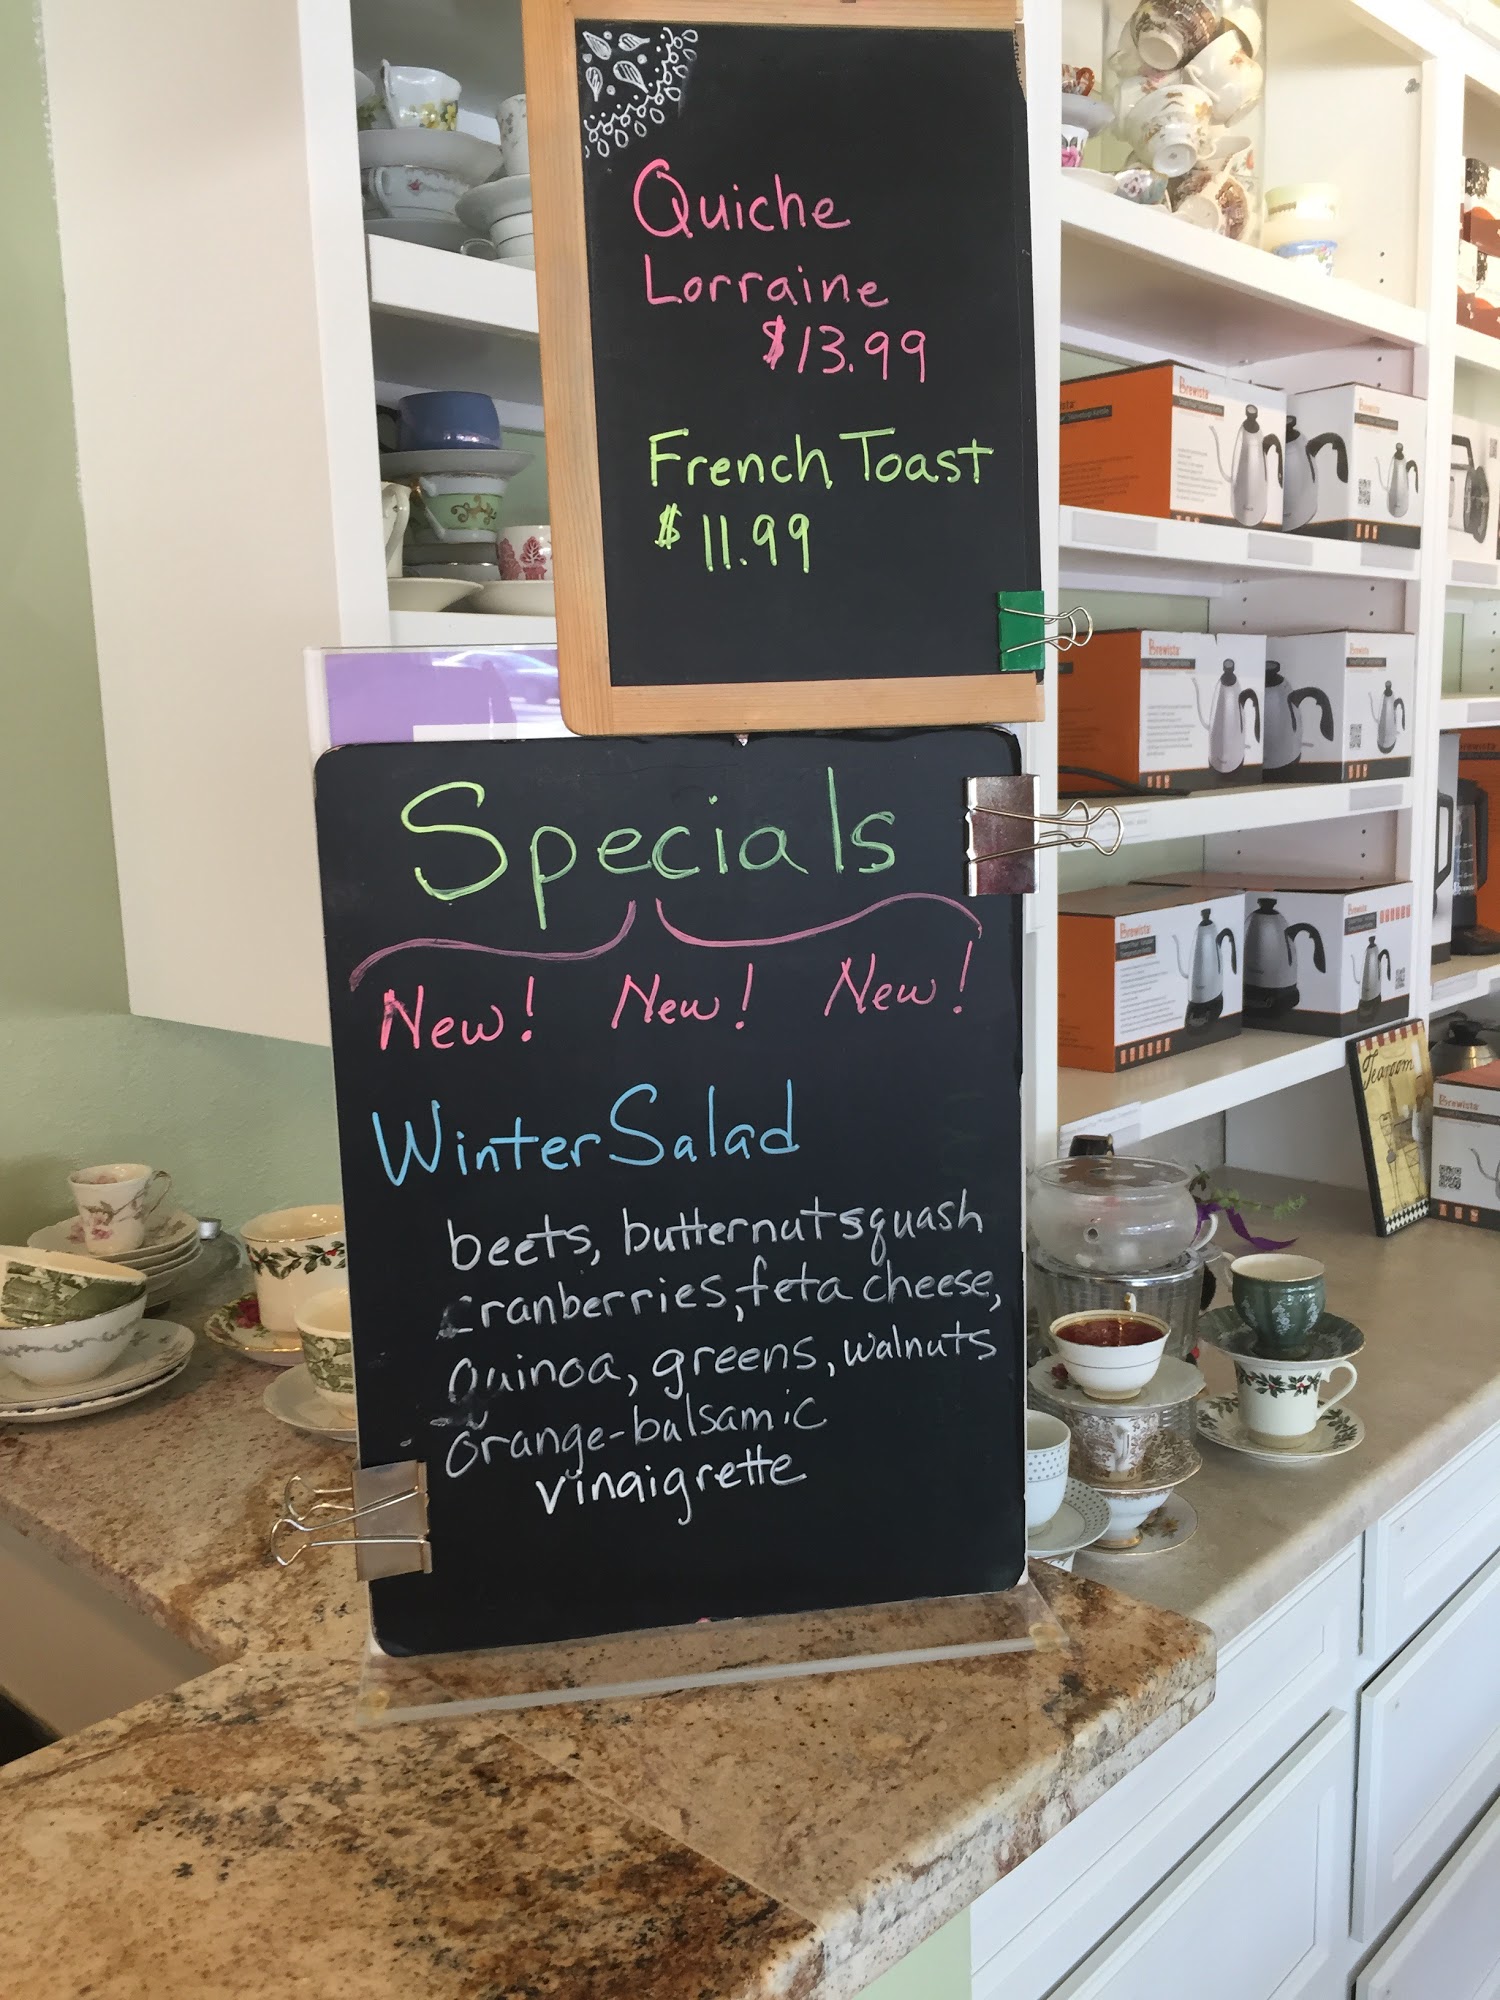 Quiche
Lorraine
$13.99
French Toast
$11.99
Specials
New! New! New!
Winter Salad
beets, butternut squash
cranberries, feta cheese,
quinoa, greens, walnuts
orange-balsamic
vinaigrette
Brewista
Brewista
Brewista
Brewista
Brewista
Brewista
Tearoom
Brewista